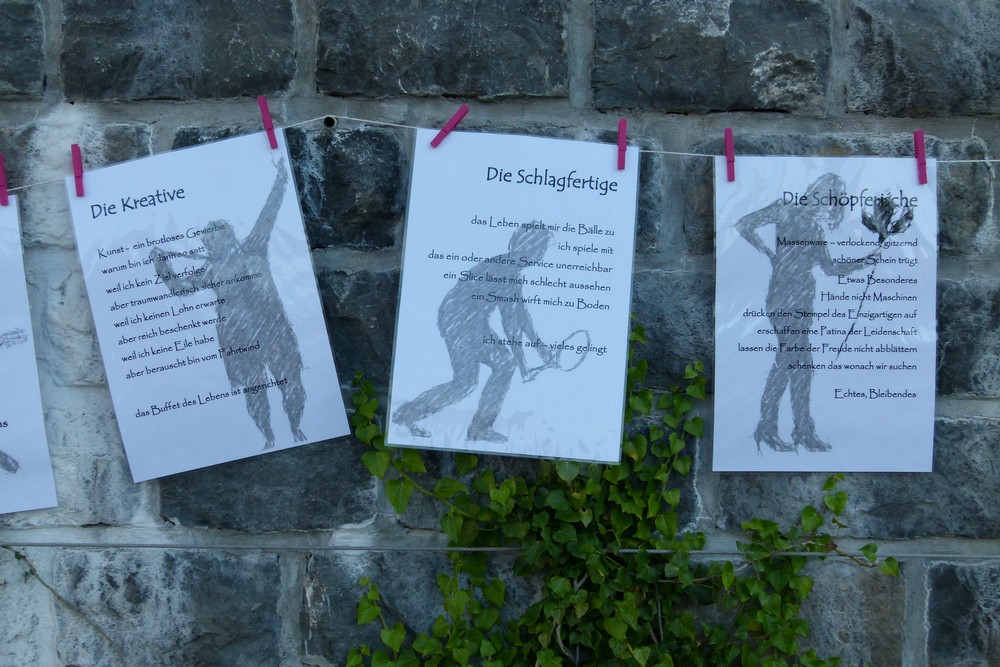 s
Die Kreative
Kunst - ein brotloses Gewerbe
warum bin ich dann so satt
weil ich kein Ziel verfolge
aber traumwandlerisch sicher ankomme
weil ich keinen Lohn erwarte
aber reich beschenkt werde
weil ich keine Eile habe
aber berauscht bin vom Fahrtwind
das Buffet des Lebens ist angerichtet
Die Schlagfertige
das Leben spielt mir die Bälle zu
ich spiele mit
das ein oder andere Service unerreichbar
ein Slice lässt mich schlecht aussehen
ein Smash wirft mich zu Boden
ich stehe auf – vieles gelingt
Die Schöpferische
Massenware – verlockend glitzernd
schöner Schein trügt
Etwas Besonderes
Hände nicht Maschinen
drücken den Stempel des Einzigartigen auf
erschaffen eine Patina der Leidenschaft
lassen die Farbe der Freude nicht abblättern
schenken das wonach wir suchen
Echtes, Bleibendes